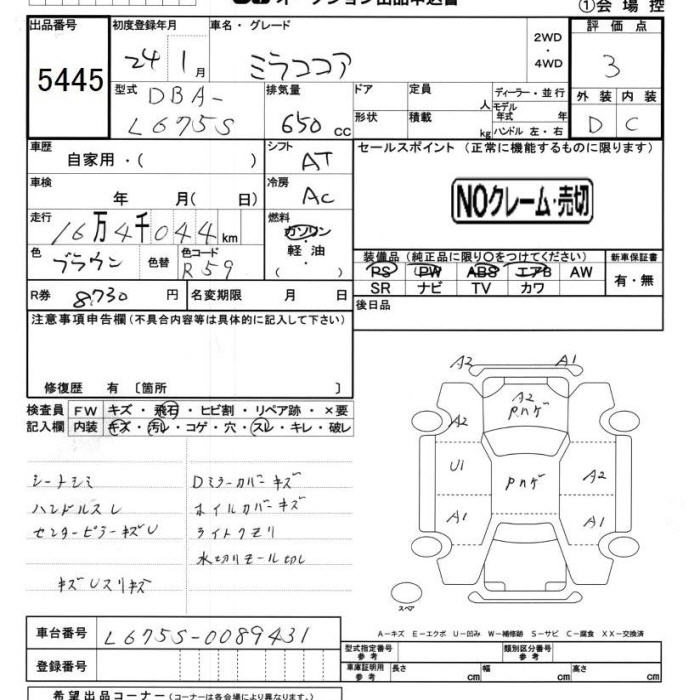 オークション出品申込書
①会場控
出品番号 初度登録年月 車名・グレード 2WD ・ 4WD 評価点
5445 24 1月 ミラココア 3
型式 DBA- L675S 排気量 650 cc ドア 定員 人 ディーラー・並行 モデル年式 年 外装 内装
形状 積載 kg ハンドル 左・右 D C
車歴 自家用・( ) シフト AT セールスポイント (正常に機能するものに限ります)
車検 年 月( 日) 冷房 AC NOクレーム・売切
走行 16万4千044km 燃料 ガソリン・軽油・( )
色 ブラウン 色替 色コード R59 装備品 (純正品に限り○をつけてください) 新車保証書
PS PW ABS エアB AW 有・無
SR ナビ TV カワ
R券 8730 円 名変期限 月 日 後日品
注意事項申告欄(不具合内容等は具体的に記入して下さい)
修復歴 有 〔箇所 〕
検査員 FW キズ・飛石・ヒビ割・リペア跡・×要
記入欄 内装 キズ・汚レ・コゲ・穴・スレ・キレ・破レ
シートシミ Dミラーカバーキズ
ハンドルスレ ホイルカバーキズ
センターピラーキズU ライトクモリ
水切りモール切し
キズUスリキズ
A2 A1
A2
Pハゲ
A2
U1 Pハゲ A2
A1 A1
スペア
車台番号 L675S-0089431
A-キズ E-エクボ U-凹み W-補修跡 S-サビ C-腐食 XX-交換済
登録番号 型式指定番号 参考 類別区分番号 参考
車庫証明用 参考 長さ cm 幅 cm 高さ cm
希望出品コーナー(コーナーは各会場により異なります。)